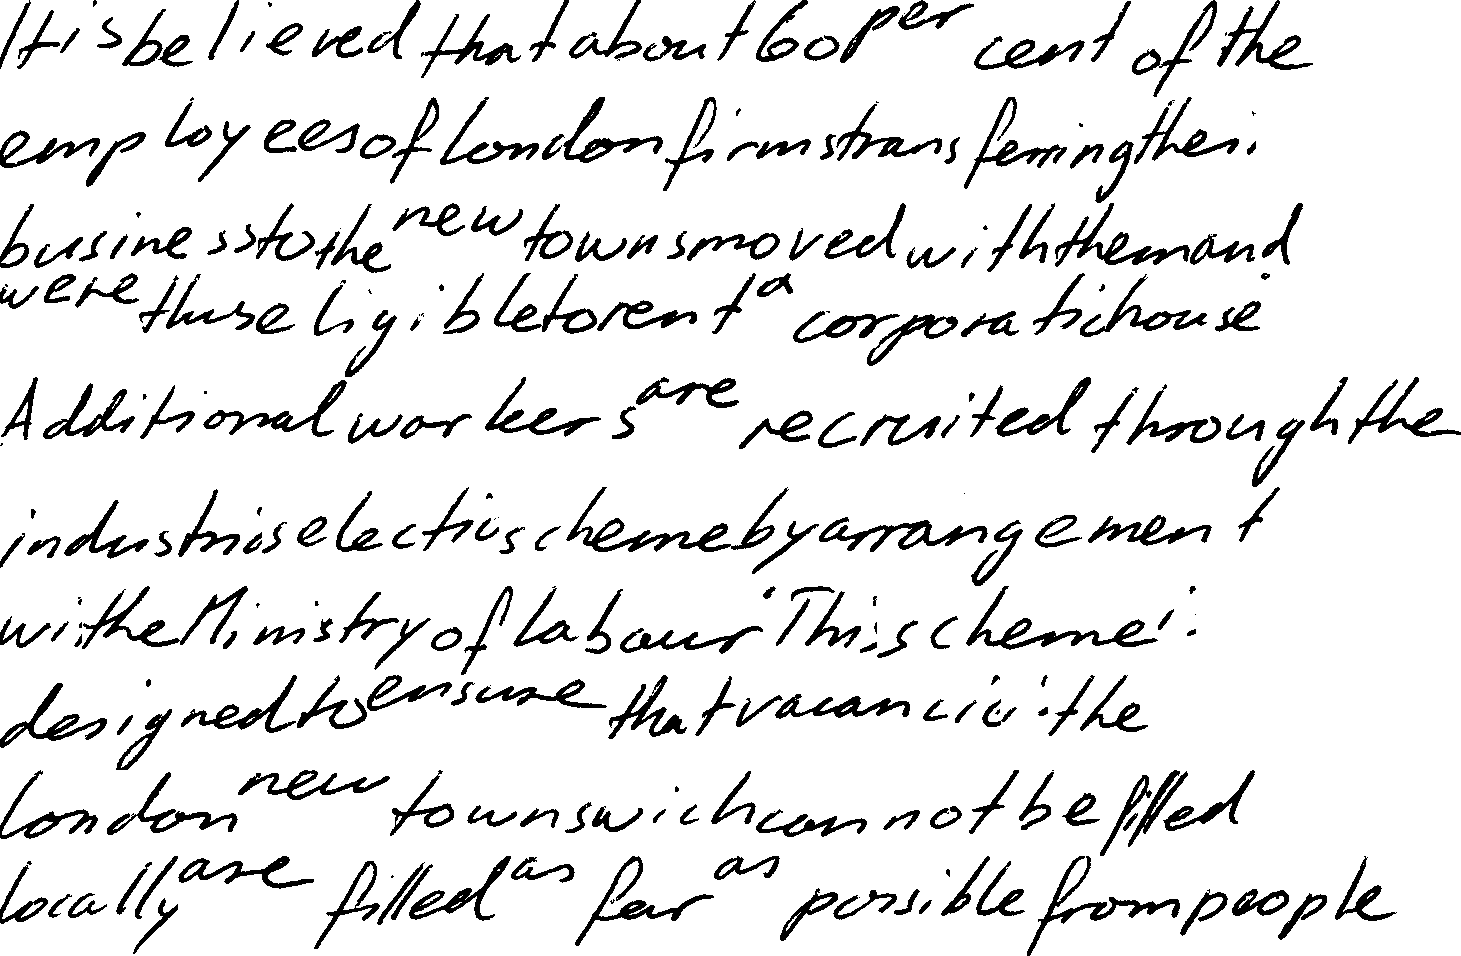 It is believed that about 60 per cent of the
employees of London firms transferring their
business to the new towns moved with them and
were thus eligible to rent a corporatic house
Additional workers are recruited through the
industrial selection scheme by arrangement
with the Ministry of Labour. This scheme is
designed to ensure that vacancies in the
London new towns wich cannot be filled
locally are filled as far as possible from people